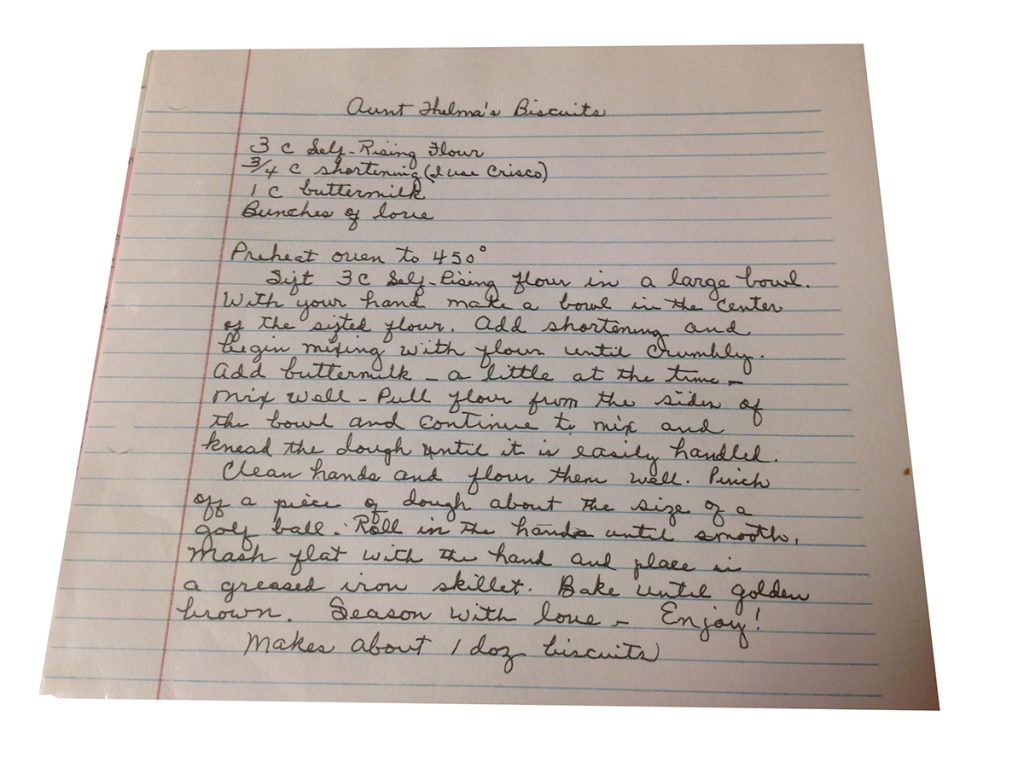 Aunt Thelma's Biscuits
3 c Self-Rising Flour
3/4 c shortening (I use Crisco)
1 c buttermilk
Bunches of love
Preheat oven to 450°
Sift 3 c Self-Rising flour in a large bowl.
With your hand make a bowl in the center
of the sifted flour. Add shortening and
begin mixing with flour until crumbly.
Add buttermilk - a little at the time -
mix well - Pull flour from the sides of
the bowl and continue to mix and
knead the dough until it is easily handled.
Clean hands and flour them well. Pinch
off a piece of dough about the size of a
golf ball. Roll in the hands until smooth.
Mash flat with the hand and place in
a greased iron skillet. Bake until golden
brown. Season with love - Enjoy!
Makes about 1 doz biscuits